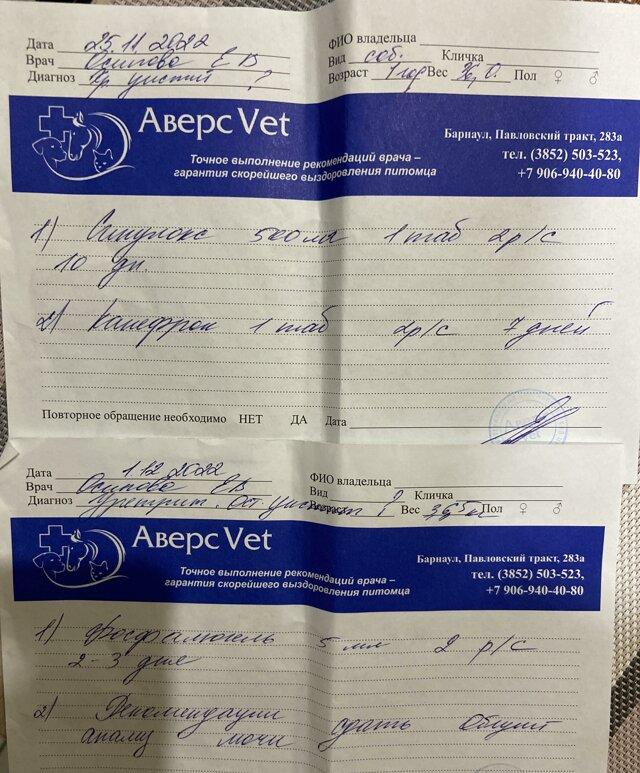 Дата 25.11.2022
Врач Осипова Е В
Диагноз Хр цистит ?
ФИО владельца
Вид соб. Кличка
Возраст 1 год Вес 36,0. Пол ♀ ♂
Аверс Vet
Точное выполнение рекомендаций врача –
гарантия скорейшего выздоровления питомца
Барнаул, Павловский тракт, 283а
тел. (3852) 503-523,
+7 906-940-40-80
1) Синулокс 500 1 таб 2 р/с
10 дн.
2) Канефрон 1 таб 2р/с 7 дней
Повторное обращение необходимо НЕТ ДА Дата
Дата 1.12.2022
Врач Осипова ЕВ
Диагноз Уретрит. Ост цистит ?
ФИО владельца
Вид Кличка
Возраст Вес Пол ♀ ♂
Аверс Vet
Точное выполнение рекомендаций врача –
гарантия скорейшего выздоровления питомца
Барнаул, Павловский тракт, 283а
тел. (3852) 503-523,
+7 906-940-40-80
1) Фосфалюгель 5 мл 2 р/с
2-3 дня
2) Рекомендации сдать общий
анализ мочи